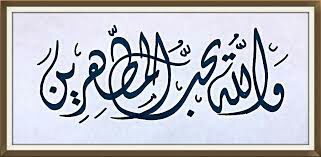 وَاللَّهُ يُحِبُّ الْمُطَّهِّرِينَ